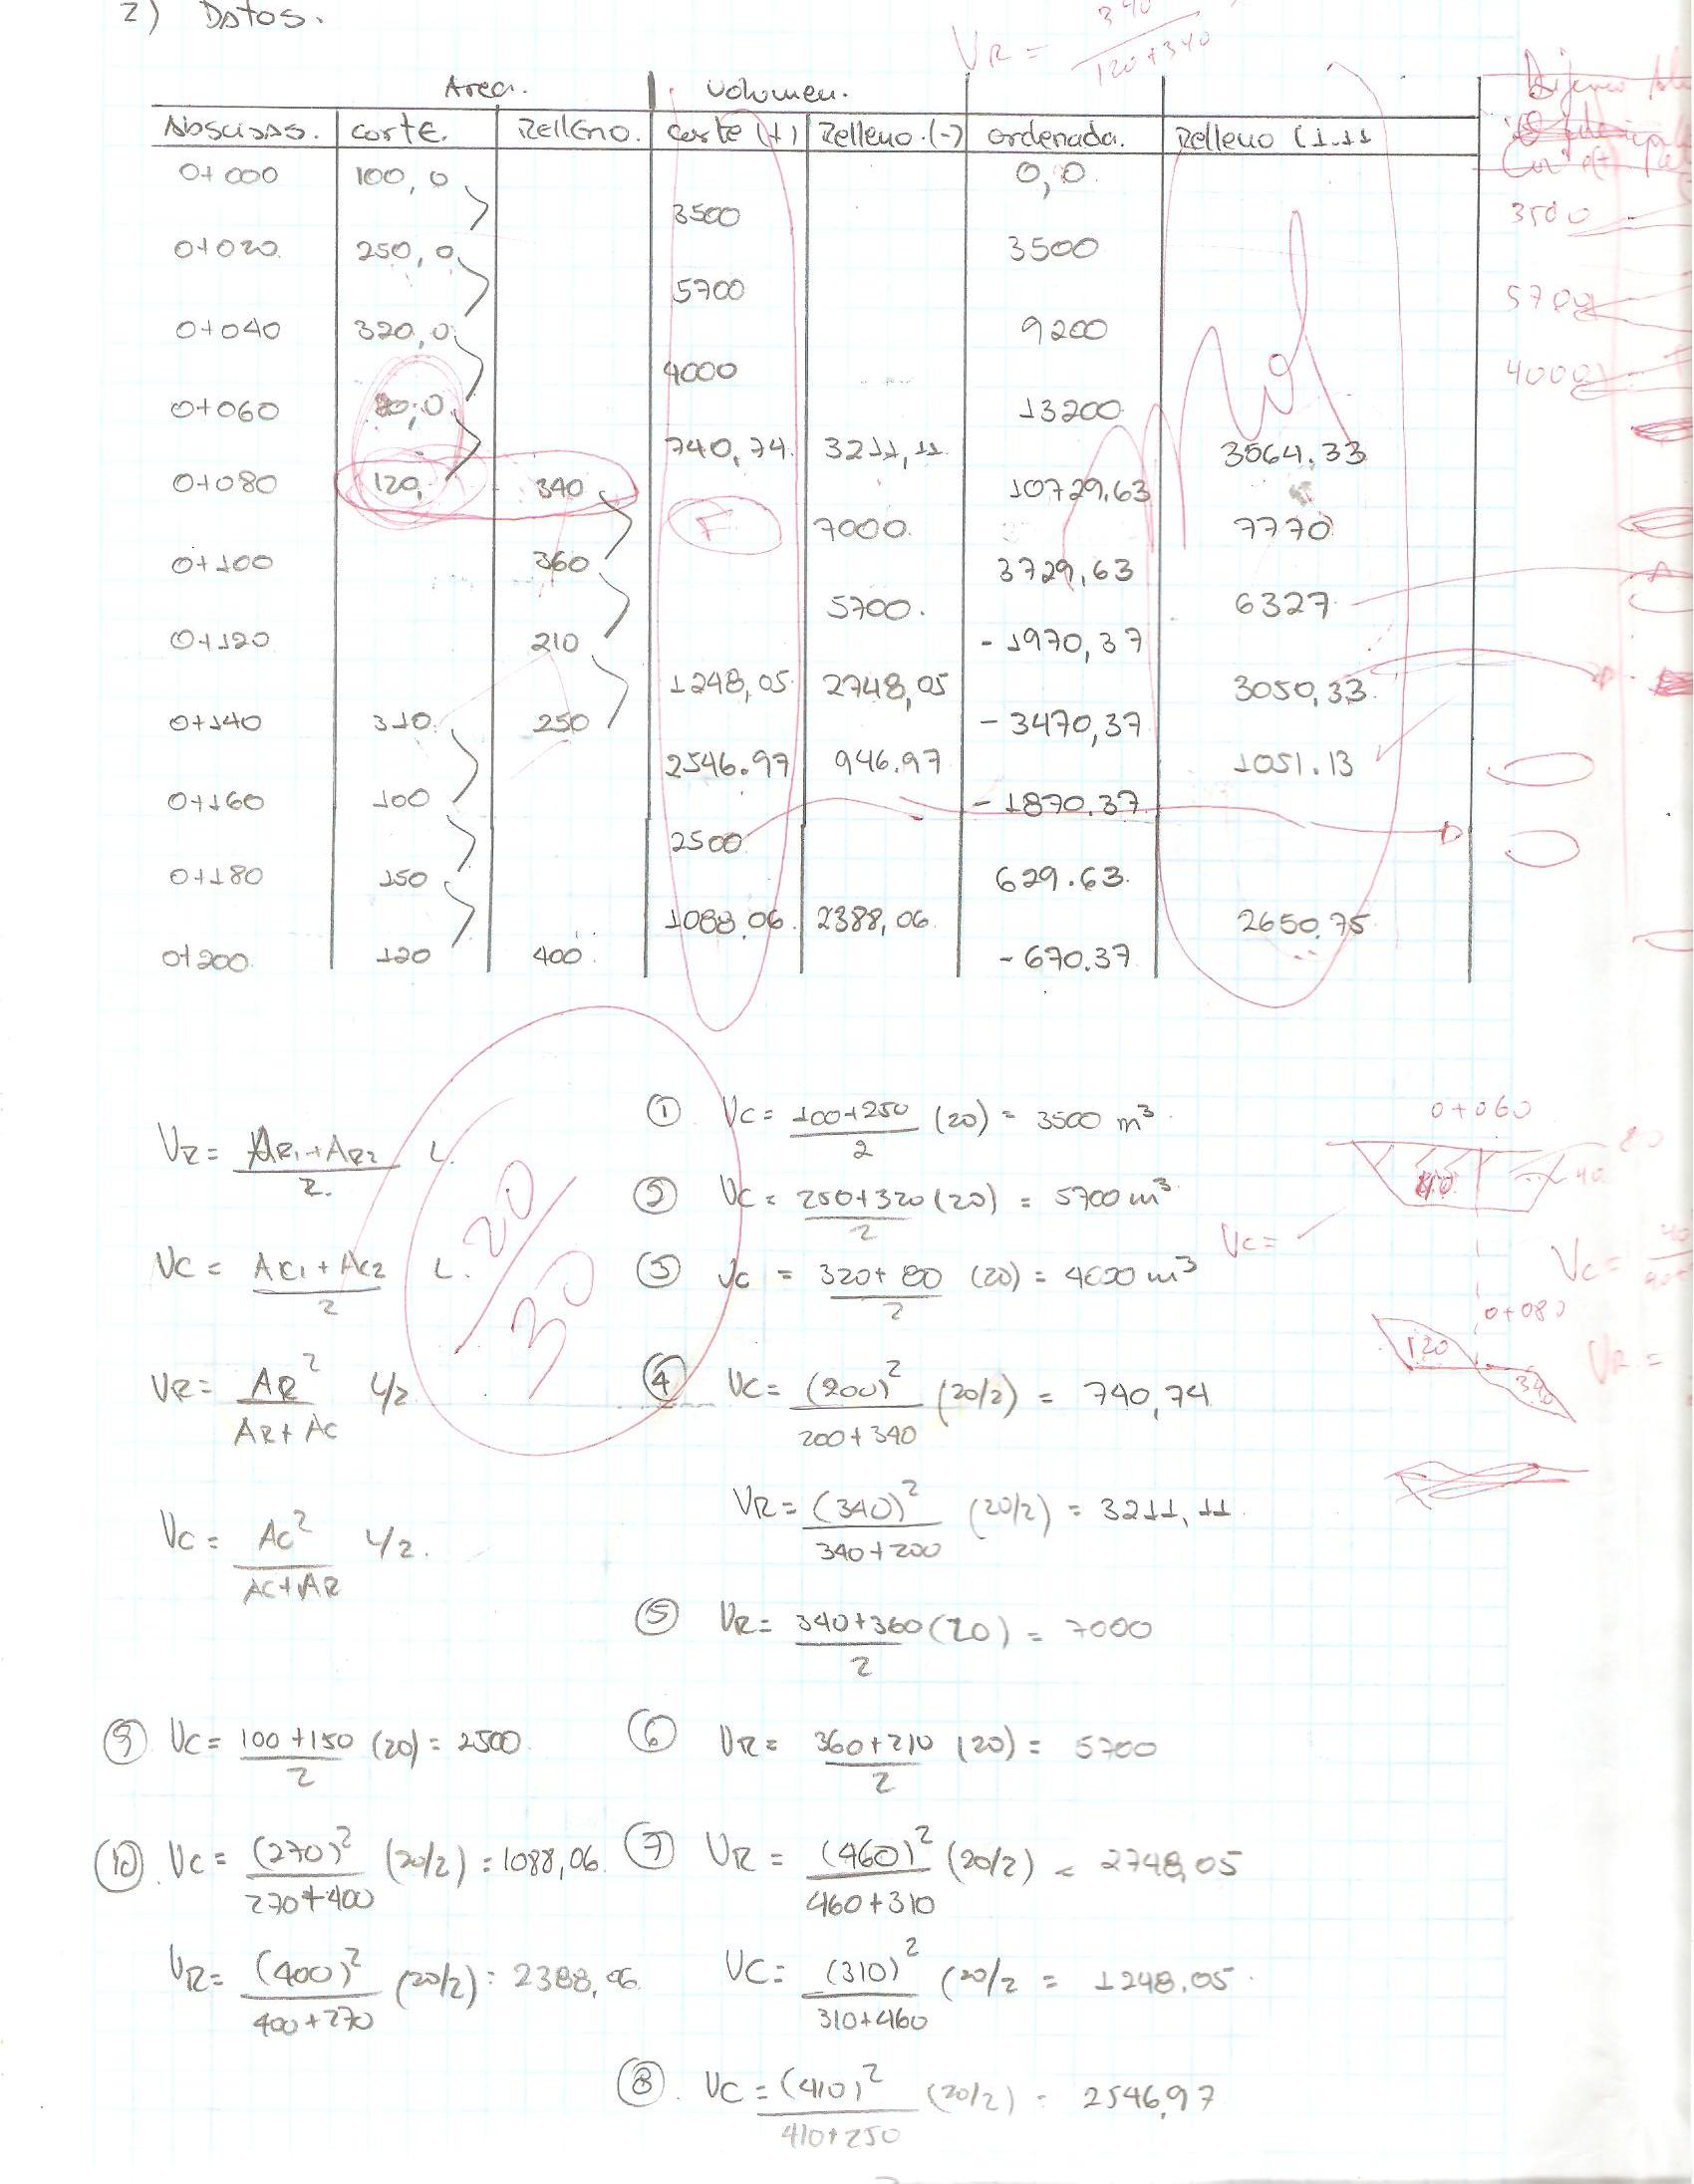 2) Datos.
VR = 340 / 120+340
Area. Volumen.
Abscisas. Corte. Relleno. Corte (+) Relleno (-) ordenada. Relleno (1.11
0+000 100,0 0,0
3500 3500
0+020 250,0 3500
5700 5700
0+040 320,0 9200
4000 4000
0+060 80,0 13200
740,74 3211,11 3564.33
0+080 120, 340 10729,63
F 7000 7770
0+100 360 3729,63
5700. 6327
0+120 210 -1970,37
1248,05 2748,05 3050,33
0+140 310 250 -3470,37
2546.97 946.97 1051.13
0+160 100 -1870.37
2500
0+180 150 629.63
1088,06 2388,06 2650,75
0+200 120 400 -670.37
20/30
VR = AR1+AR2 / 2. L.
VC = AC1+AC2 / 2 L.
VR = AR² / AR+AC L/2
VC = AC² / AC+AR L/2.
① VC = 100+250 / 2 (20) = 3500 m³
② VC = 250+320 / 2 (20) = 5700 m³
③ VC = 320+80 / 2 (20) = 4000 m³
④ VC = (200)² / 200+340 (20/2) = 740,74
VR = (340)² / 340+200 (20/2) = 3211,11
⑤ VR = 340+360 / 2 (20) = 7000
⑥ VR = 360+210 / 2 (20) = 5700
⑦ VR = (460)² / 460+310 (20/2) = 2748,05
VC = (310)² / 310+460 (20/2 = 1248.05
⑧ VC = (410)² / 410+250 (20/2) = 2546,97
⑨ VC = 100+150 / 2 (20) = 2500
⑩ VC = (270)² / 270+400 (20/2) = 1088,06
VR = (400)² / 400+270 (20/2) = 2388,06
0+060
80
40
VC =
VC =
0+080
120
340
VR =